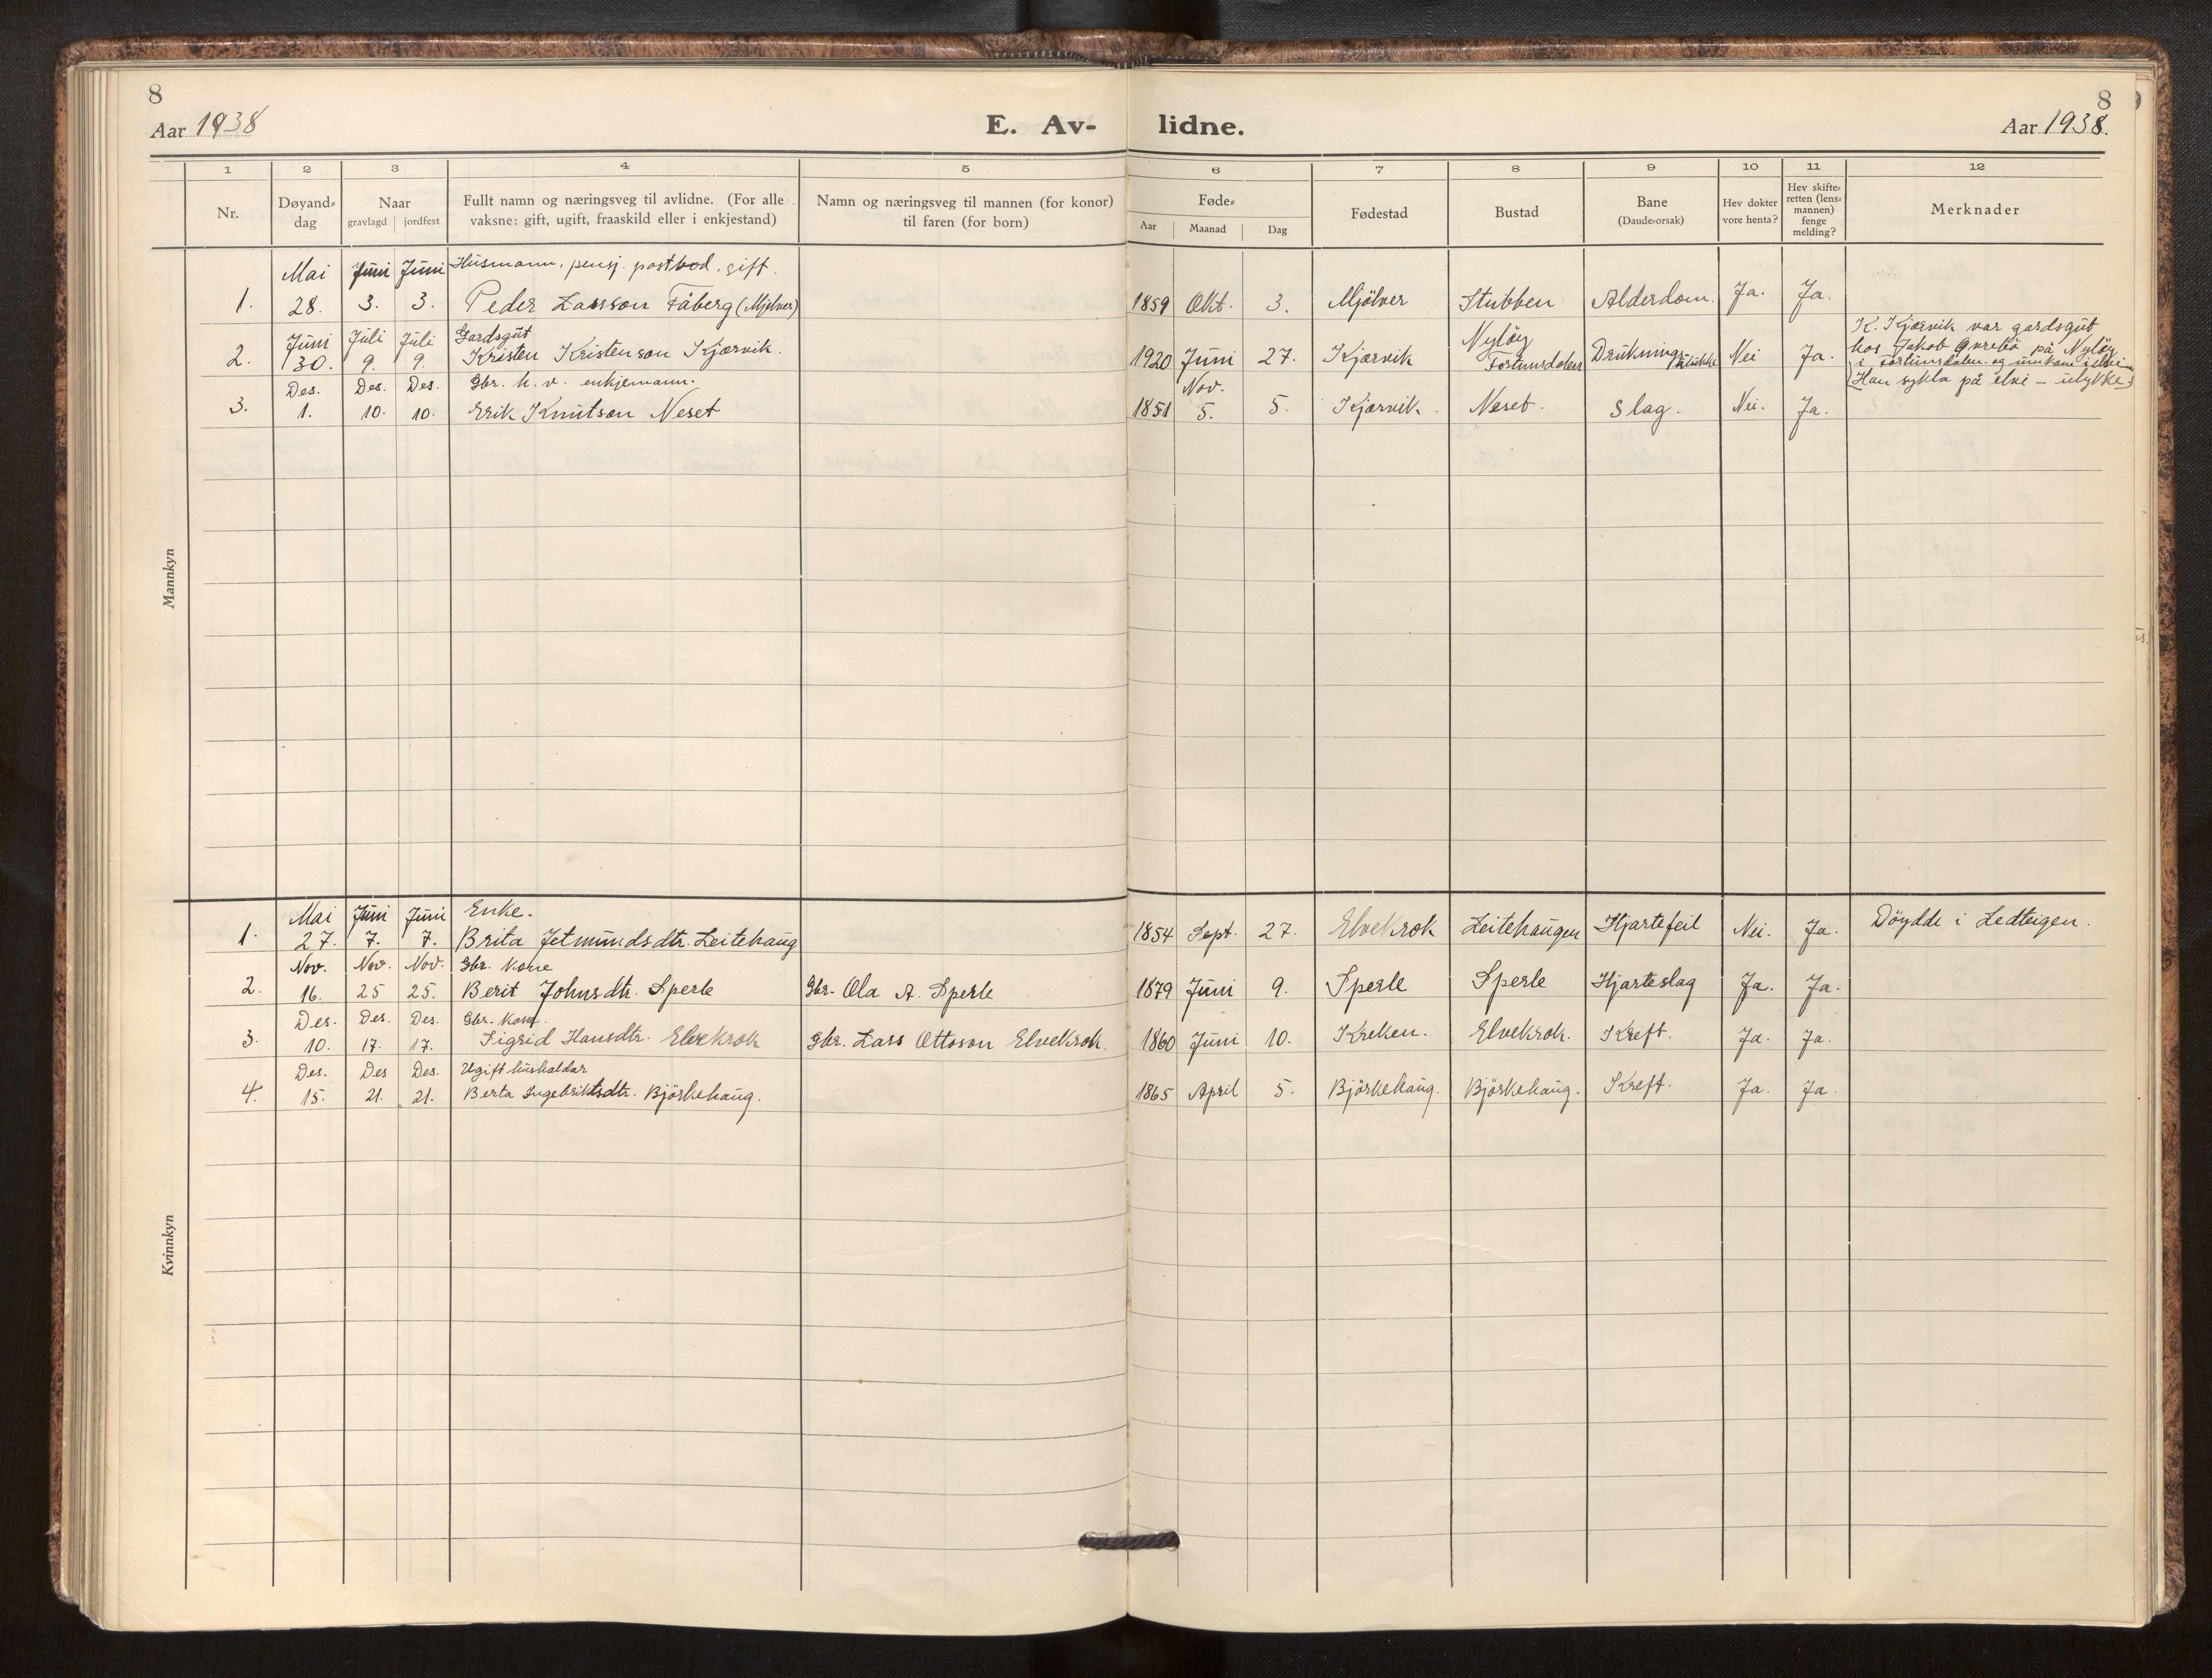 8
Aar 1938
E. Av-
lidne.
8
Aar 1938.
1 2 3 4 5 6 7 8 9 10 11 12
Nr.
Døyand-
dag
Naar
gravlagd jordfest
Fullt namn og næringsveg til avlidne. (For alle
vaksne: gift, ugift, fraaskild eller i enkjestand)
Namn og næringsveg til mannen (for konor)
til faren (for born)
Føde-
Aar Maanad Dag
Fødestad
Bustad
Bane
(Daude-orsak)
Hev dokter
vore henta?
Hev skifte-
retten (lens-
mannen)
fenge
melding?
Merknader
Mannkyn
Mai Juni Juni Husmann, pensj. postbod, gift.
1. 28. 3. 3. Peder Larsson Fåberg (Mjølver) 1859 Okt. 3. Mjölver Stubben Alderdom. Ja. Ja.
Juni Juli Juli Gardsgut Nylöy K. Kjærvik var gardsgut
2. 30. 9. 9. Kristen Kristenson Kjærvik. 1920 Juni 27. Kjærvik Fortunsdalen Drukningsulukke Nei Ja. hos Jakob Øvrebö på Nylöy
i Fortunsdalen og umkom i elvi
Des. Des. Des. Gbr. h. v. enkjemann. Nov. (Han sykla på elvi – ulykke)
3. 1. 10. 10. Erik Knutson Neset 1851 5. 5. Kjærvik. Neset. Slag. Nei. Ja.
Kvinnkyn
Mai Juni Juni Enke.
1. 27. 7. 7. Brita Jetmundsdtr. Leitehaug 1854 Sept. 27. Elvekrok Leitehaugen Hjartefeil Nei. Ja. Döydde i Ledteigen.
Nov. Nov. Nov. Gbr. Kone
2. 16. 25 25. Berit Johnsdtr. Sperle Gbr. Ola A. Sperle 1879 Juni 9. Sperle Sperle Hjarteslag Ja. Ja.
Des. Des. Des. Gbr. Kone.
3. 10. 17. 17. Sigrid Hansdtr. Elvekrok Gbr. Lars Ottoson Elvekrok. 1860 Juni 10. Kreken. Elvekrok. Kreft. Ja. Ja.
Des. Des Des. Ugift hushaldar
4. 15. 21. 21. Berta Ingebriktsdtr. Björkehaug. 1865 April 5. Björkehaug. Björkehaug. Kreft. Ja. Ja.